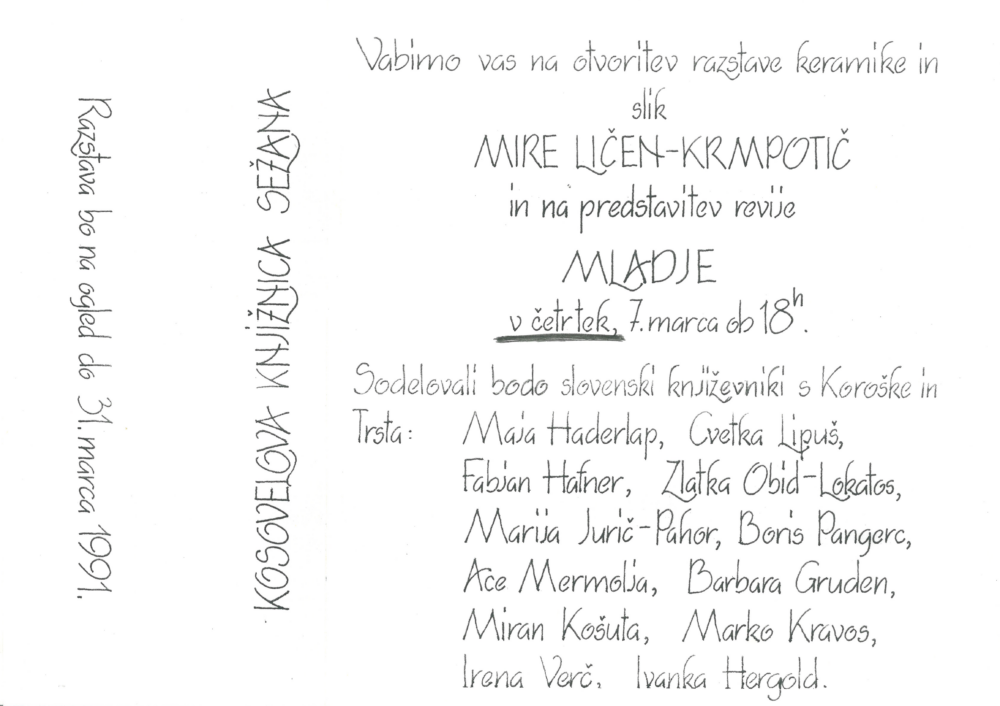 Razstava bo na ogled do 31. marca 1991.
KOSOVELOVA KNJIŽNICA SEŽANA
Vabimo vas na otvoritev razstave keramike in
slik
MIRE LIČEN-KRMPOTIČ
in na predstavitev revije
MLADJE
v četrtek, 7. marca ob 18h.
Sodelovali bodo slovenski književniki s Koroške in
Trsta: Maja Haderlap, Cvetka Lipuš,
Fabjan Hafner, Zlatka Obid-Lokatos,
Marija Jurič-Pahor, Boris Pangerc,
Ace Mermolja, Barbara Gruden,
Miran Košuta, Marko Kravos,
Irena Verč, Ivanka Hergold.